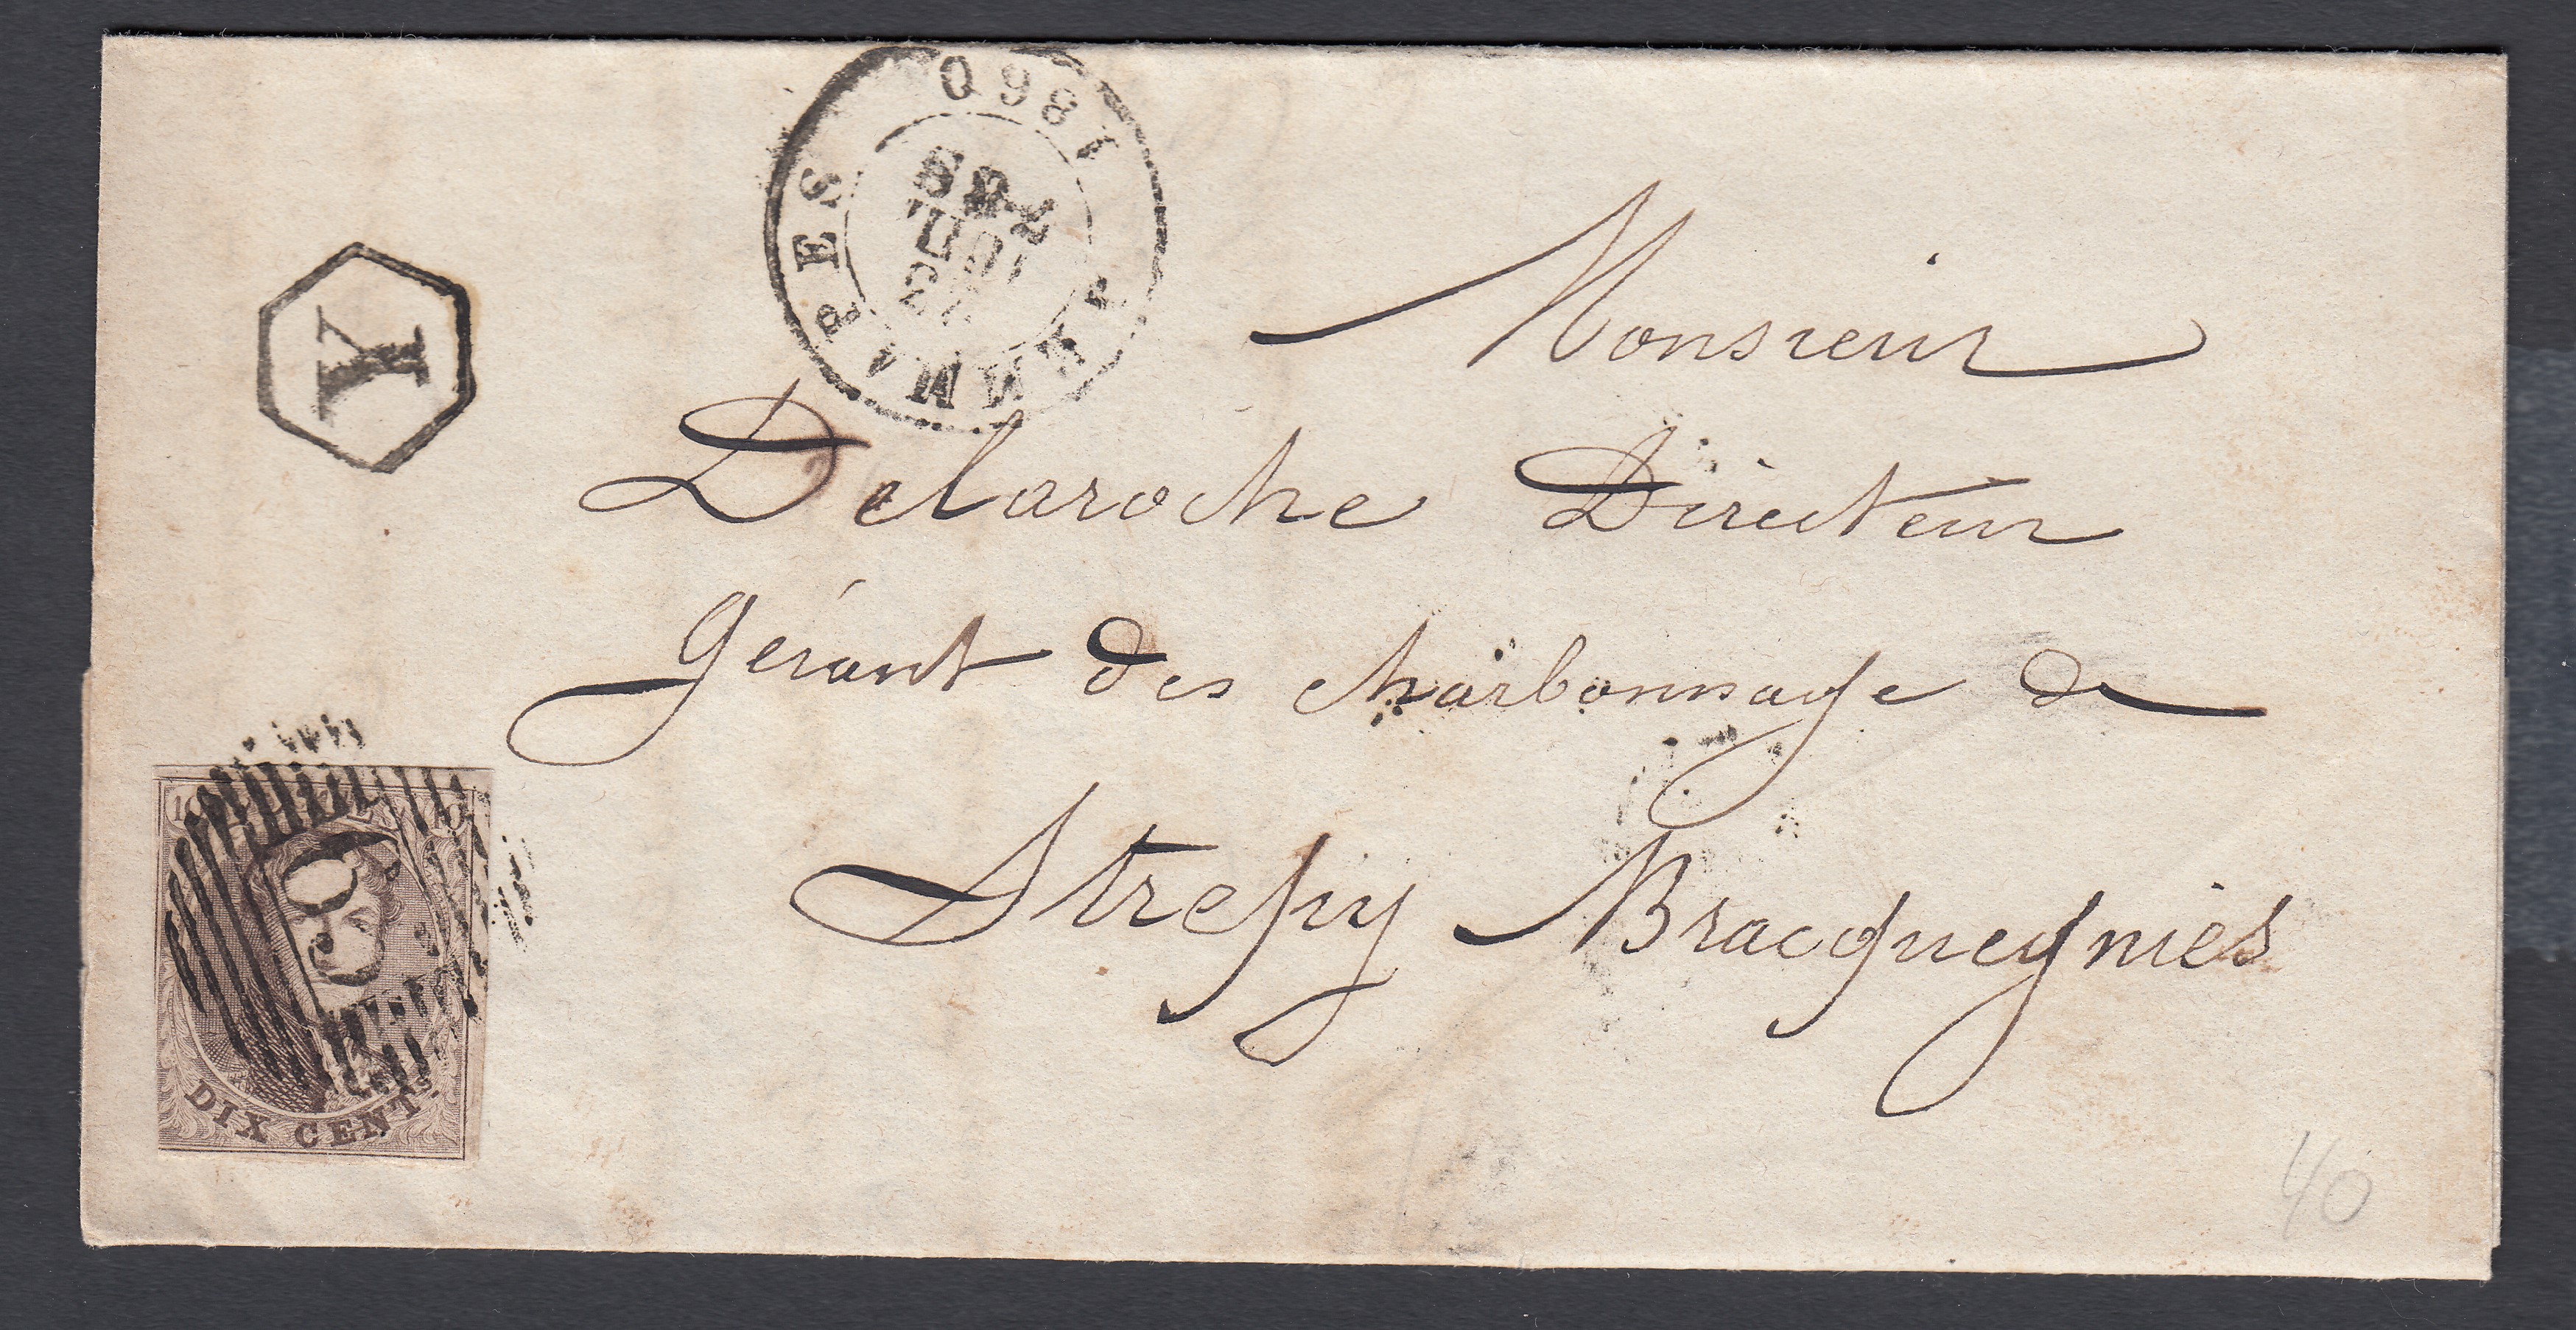 1860
JEMMAPES
23
JUIL
Y
Monsieur
Delaroche Directeur
Gérant des charbonnage de
Strépy Bracquegnies
10 10
DIX CENTS.
40